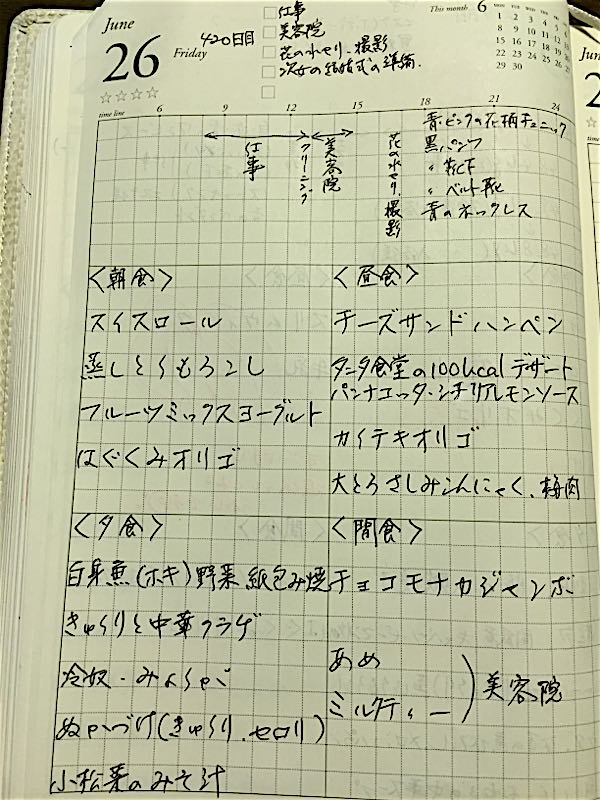 June
26
Friday
420日目
仕事
美容院
花の水せり、撮影
次女の結婚式の準備.
This month 6
MON TUE WED THU FRI
1 2 3 4 5 6
8 9 10 11 12
15 16 17 18 19
22 23 24 25 26
29 30
☆☆☆☆
time line 6 9 12 15 18 21 24
仕事
クリーニング
美容院
花の水せり、撮影
青・ピンクの花柄チュニック
黒パンツ
〃 靴下
〃 ベルト靴
青のネックレス
<朝食>
スイスロール
蒸しとうもろこし
フルーツミックスヨーグルト
はぐくみオリゴ
<昼食>
チーズサンドハンペン
タニタ食堂の100kcalデザート
パンナコッタ・シチリアレモンソース
カイテキオリゴ
大とろさしみこんにゃく、梅肉
<夕食>
白身魚(ホキ)野菜 紙包み焼
きゅうりと中華クラゲ
冷奴・みょうが
ぬかづけ(きゅうり、セロリ)
小松菜のみそ汁
<間食>
チョコモナカジャンボ
あめ
ミルクティー
美容院